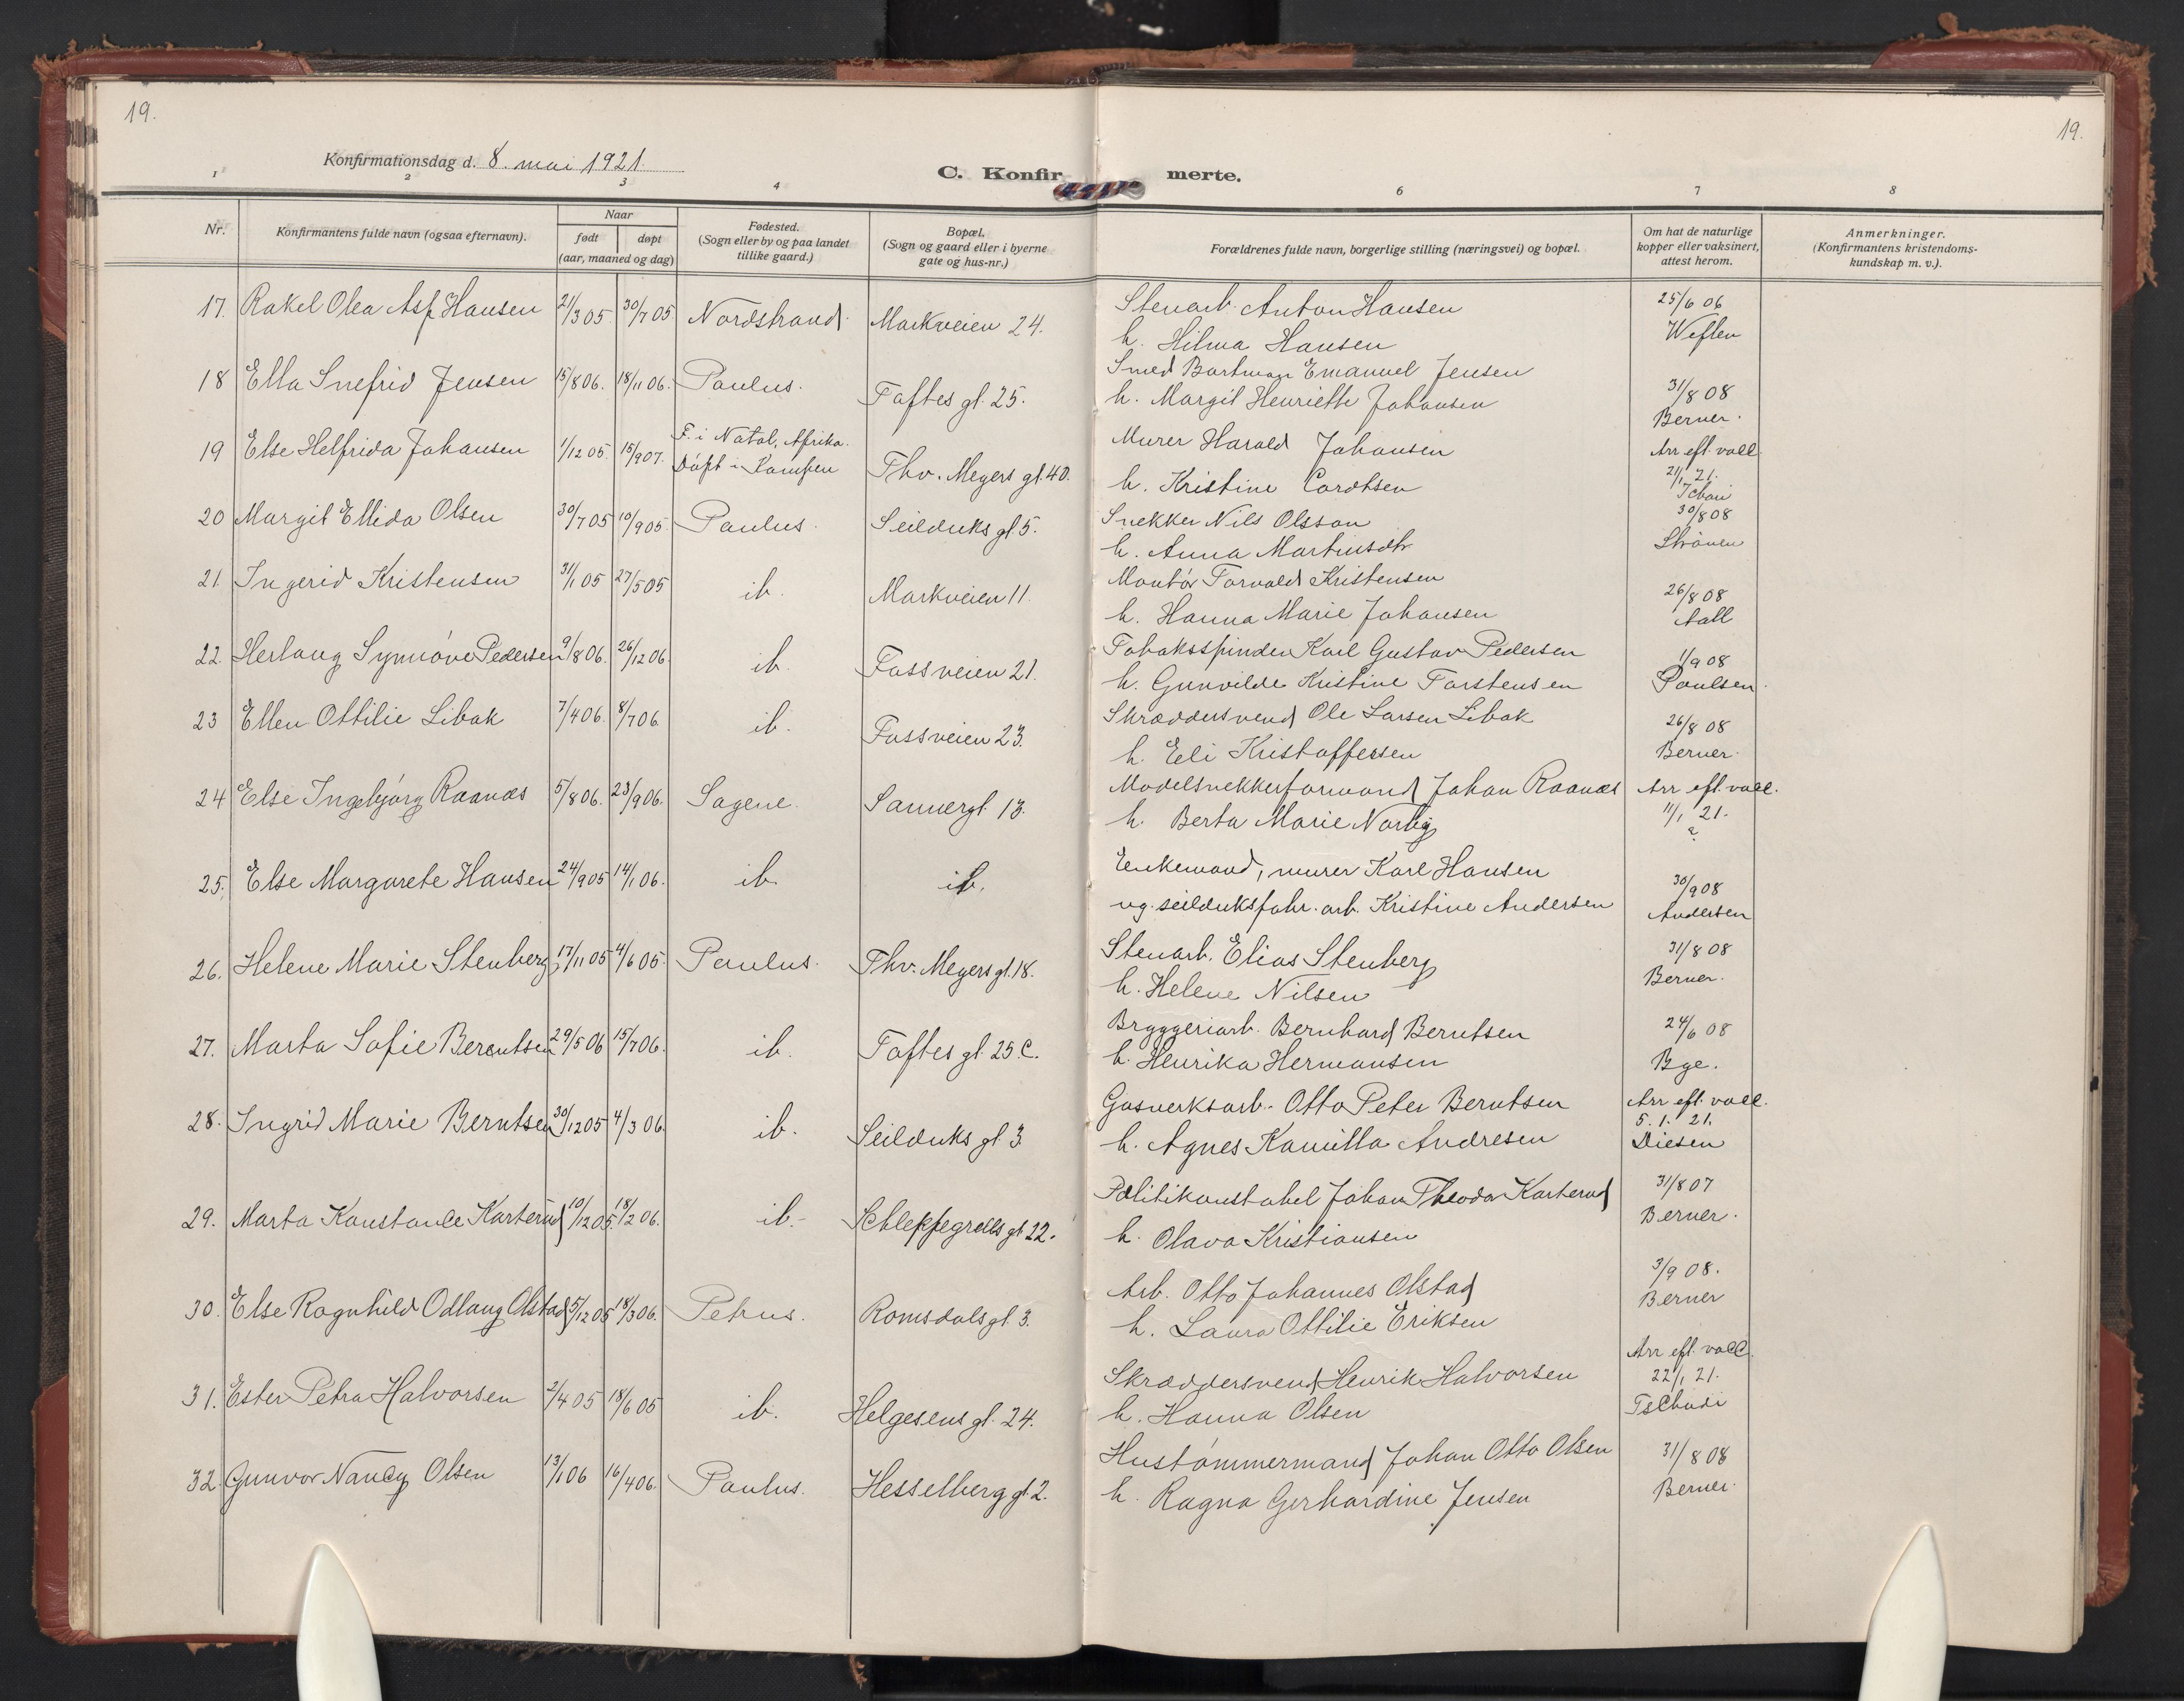 19.
19.
Konfirmationsdag d. 8. mai 1921.
C. Konfirmerte.
1 2 3 4 6 7 8
Nr.
Konfirmantens fulde navn (ogsaa efternavn).
Naar
født døpt
(aar, maaned og dag)
Fødested.
(Sogn eller by og paa landet
tillike gaard.)
Bopæl.
(Sogn og gaard eller i byerne
gate og hus-nr.)
Forældrenes fulde navn, borgerlige stilling (næringsvei) og bopæl.
Om hat de naturlige
kopper eller vaksinert,
attest herom.
Anmerkninger.
(Konfirmantens kristendoms-
kundskap m. v.).
17. Rakel Olea Asp Hansen 21/3 05. 30/7 05 Nordstrand. Markveien 24. Stenarb. Anton Hansen 25/6 06
h. Hilma Hansen Weflen
18 Ella Snefrid Jensen 15/8 06. 18/11 06. Paulus. Toftes gt. 25. Smed Bartman Emanuel Jensen 31/8 08
h. Margit Henriette Johansen Berner.
19 Else Helfrida Johansen 1/12 05 15/9 07. F. i Natal, Afrika. Murer Harald Johansen Arr eft. vacc.
Døpt i Kampen Thv. Meyers gt. 40. h. Kristine Cordtsen 21/1 21.
20 Margit Ellida Olsen 30/7 05 10/9 05. Paulus. Seilduks gt 5. Snekker Nils Olsson 30/8 08
h. Anna Martinsdtr
21. Ingerid Kristensen 31/1 05 27/5 05 ib. Markveien 11. Montør Torvald Kristensen 26/8 08
h. Hanna Marie Johansen Aall
22. Herlaug Synnøve Pedersen 9/8 06. 26/12 06. ib. Fossveien 21. Tobaksspinder Karl Gustav Pedersen 1/9 08
h. Gunvilde Kristine Torstensen Poulsen.
23 Ellen Ottilie Libak 7/4 06. 8/7 06. ib. Fossveien 23. Skræddersvend Ole Larsen Libak 26/8 08
h. Eli Kristoffersen Berner.
24 Else Ingebjørg Raanæs 5/8 06. 23/9 06. Sagene. Sannergt 13. Modelsnekkerformand Johan Raanæs Arr eft. vacc.
h. Berta Marie Norby 11/1 21.
25. Else Margarete Hansen 24/9 05 14/1 06. ib. ib. Enkemand, murer Karl Hansen 30/9 08
ug. seilduksfabr. arb. Kristine Andersen Andersen
26. Helene Marie Stenberg 17/11 05 4/6 05. Paulus. Thv. Meyers gt. 18. Stenarb. Elias Stenberg 31/8 08
h. Helene Nilsen Berner.
27. Marta Sofie Berentsen 29/5 06 15/7 06. ib. Toftes gt. 25.C. Bryggeriarb. Bernhard Berntsen 24/6 08
h. Henrika Hermansen Bge.
28. Ingrid Marie Berntsen 30/12 05 4/3 06. ib. Seilduks gt. 3 Gasverksarb. Otto Peter Berntsen Arr eft. vacc.
5. 1. 21.
h. Agnes Kamilla Andresen Diesen
29. Marta Konstance Karterud 10/12 05. 18/2 06. ib. Schleppegrells gt 22. Politikonstabel Johan Theodor Karterud 31/8 07
h. Olava Kristiansen Berner.
30. Else Ragnhild Odlaug Olstad 5/12 05 18/3 06. Petrus. Romsdals gt. 3. Arb. Otto Johannes Olstad 3/9 08.
h. Laura Ottilie Eriksen Berner
31. Ester Petra Halvorsen 2/4 05 18/6 05 ib. Helgesens gt. 24. Skræddersvend Henrik Halvorsen Arr eft. vacc.
22/1 21.
h. Hanna Olsen Tschudi
32. Gunvor Nancy Olsen 13/1 06 16/4 06. Paulus. Hesselberg gt. 2. Hustømmermand Johan Otto Olsen 31/8 08
h. Ragna Gerhardine Jensen Berner.